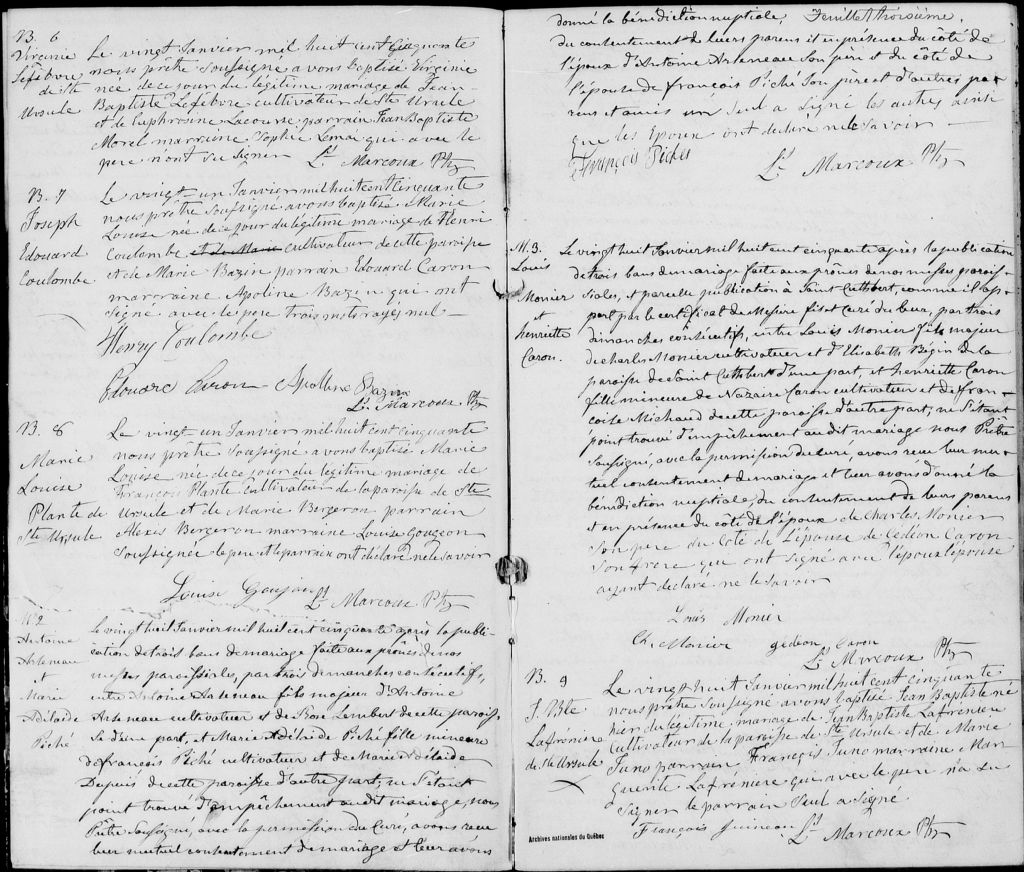 B. 6
Virginie
Lefebvre
de Ste
Ursule
Le vingt Janvier mil huit cent Cinquante
nous prêtre Soussigné avons baptisé Virginie
née de ce jour du légitime mariage de Jean
Baptiste Lefebvre cultivateur de Ste Ursule
et de Euphrosine Lacourse parrain Jean Baptiste
Morel marraine Sophie Lemai qui avec le
pere n'ont su signer Lt Marcoux Ptr
B. 7
Joseph
Edouard
Coulombe
Le vingt-un Janvier mil huit cent Cinquante
nous prêtre soussigné avons baptisé Marie
Louise née de ce jour du légitime mariage de Henri
Coulombe et de Marie cultivateur de cette paroisse
et de Marie Bazin parrain Edouard Caron
marraine Apoline Bazin qui ont
Signé avec le pere trois mots rayés nul
Henry Coulombe
Edouard Caron Apolline Bazin
Lt Marcoux Ptr
B. 8
Marie
Louise
Plante de
Ste Ursule
Le vingt-un Janvier mil huit cent cinquante
nous prêtre Soussigné avons baptisé Marie
Louise née de ce jour du légitime mariage de
François Plante cultivateur de la paroisse de Ste
Ursule et de Marie Bergeron parrain
Alexis Bergeron marraine Louise Gougeon
Soussignée le pere et le parrain ont déclaré ne le savoir
Louise Goujeon
Lt Marcoux Ptr
M. 2
Antoine
Arteneau
et
Marie
Adélaide
Piché
Le vingt huit Janvier mil huit cent cinquante après la publi-
cation de trois bans de mariage faite aux prônes de nos
messes paroissiales, par trois dimanches consécutifs,
entre Antoine Arteneau fils majeur d'Antoine
Arteneau cultivateur et de Rose Lembert de cette parois-
se d'une part, et Marie Adélaide Piché fille mineure
de françois Piché cultivateur et de Marie Adélaide
Dupuis de cette paroisse d'autre part; ne s'étant
point trouvé d'empêchement au dit mariage, nous
Prêtre Soussigné, avec la permission du Curé, avons reçu
leur mutuel consentement de mariage et leur avons
donné la bénédiction nuptiale, Feuille troisième.
du contentement de leurs parens et en présence du côté de
l'époux d'Antoine Arteneau son père et du côté de
l'épouse de françois Piché son père et d'autres pa-
rens et amis un seul a signé les autres ainsi
que les Epoux ont déclaré ne le savoir
François Pichés
Lt Marcoux Ptr
M. 3.
Louis
Monier
et
henriette
Caron.
Le vingt huit Janvier mil huit cent cinquante après la publication
de trois bans de mariage faite aux prônes de nos messes parois-
siales, et pareille publication à Saint Cuthbert, comme il ap-
pert par le certificat de Messire curé du lieu, par trois
dimanches consécutifs, entre Louis Monier fils majeur
de charles Monier cultivateur et d'Elisabeth Bégin de la
paroisse de Saint Cuthbert d'une part, et henriette Caron
fille mineure de Nazaire Caron cultivateur et de fran-
çoise Michaud de cette paroisse d'autre part, ne s'étant
point trouvé d'empêchement au dit mariage nous Prêtre
Soussigné, avec la permission du curé, avons reçu leur mu-
tuel consentement de mariage et leur avons donné la
bénédiction nuptiale, du contentement de leurs parens
et en présence du côté de l'époux de Charles Monier
son pere du côté de l'épouse de Gédéon Caron
Son frere qui ont signé avec l'époux l'épouse
ayant déclaré ne le savoir
Louis Monier
Ch. Monier gédéon Caron
Lt Marcoux Ptr
B. 9
J. Bte
Lafrénière
de Ste Ursule
Le vingt huit Janvier mil huit cent cinquante
nous prêtre Soussigné avons baptisé Jean Baptiste né
hier du légitime mariage de Jean Baptiste Lafrénière
Cultivateur de la paroisse de Ste Ursule et de Marie
Juno parrain François Juno marraine Mar-
guerite Lafrénière qui avec le pere n'a su
Signer le parrain Seul a Signé
François Juineau
Lt Marcoux Ptr
Archives nationales du Québec